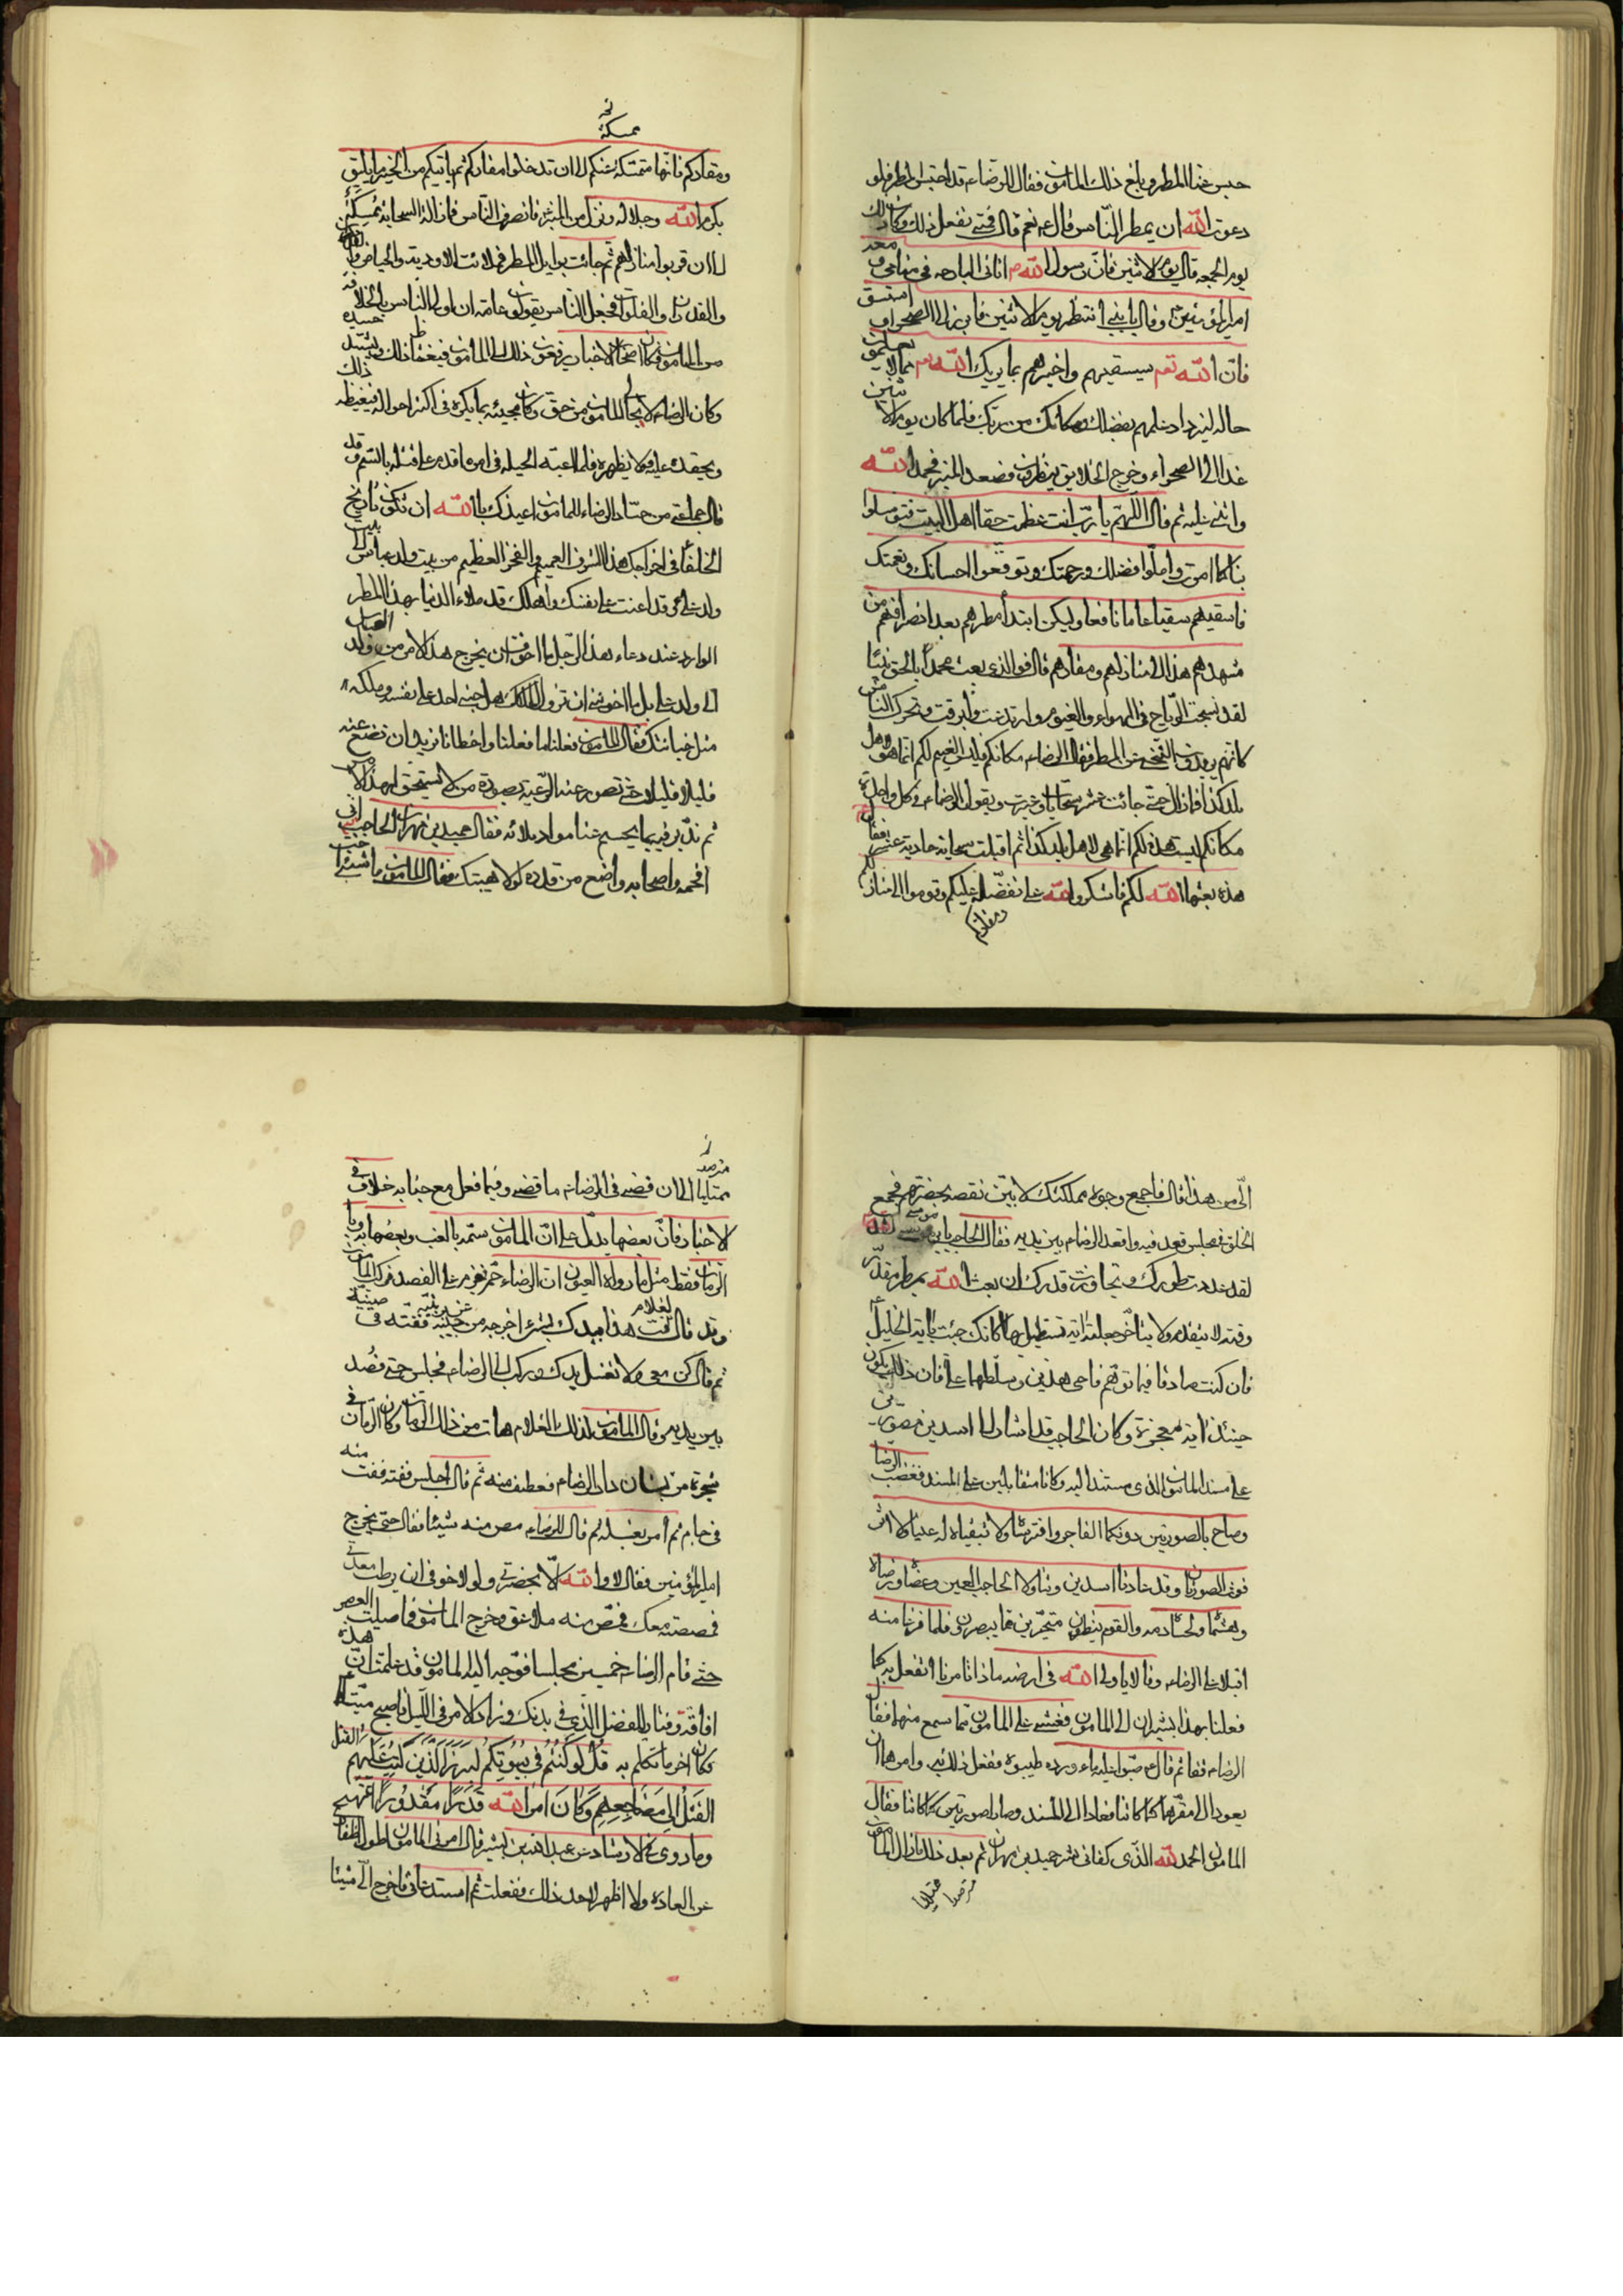 حبس عنا المطر وبلغ ذلك المامون فقال للرضاء قد احتبس المطر فلو
دعوت الله ان يمطر الناس قال ع نعم قال فمتى تفعل ذلك وكان ذلك
يوم الجمعه قال يوم الاثنين فان رسول الله ص اتاني البارحه في منامي ومعه
امير المؤمنين وقال يا بني انتظر يوم الاثنين فابرز الى الصحراء واستسق
فان الله تعم سيسقيهم واخبرهم بما يريك الله تعم مما لا يعلمون
حاله ليزداد علمهم بفضلك ومكانك من ربك فلما كان يوم الاثنين
غدا الى الصحراء وخرج الخلايق ينظرون فصعد المنبر فحمد الله
واثنى عليه ثم قال اللهم يا رب انت عظمت حقنا اهل البيت فتوسلوا
بنا كما امرت واملوا فضلك ورحمتك وتوقعوا احسانك ونعمتك
فاسقيهم سقيا عاما نافعا وليكن ابتدأ مطرهم بعد انصرافهم من
مشهدهم هذا الى منازلهم ومقارهم قال فوالذي بعث محمدا بالحق نبيا
لقد نسجت الرياح في الهواء والغيوم وارتدعت وابرقت وتحرك الناس
كانهم يريدون التنحي عن المطر فقال الرضاء مكانكم فليس الغيم لكم انما هو لاهل
بلد كذا فما زال حتى جائت عشر سحابات وعبرت ويقول الرضاء في كل واحدة
مكانكم ليست هذه لكم انما هي لاهل بلد كذا ثم اقبلت سحابة حادية عشر فقال
هذه بعثها الله لكم فاشكروا الله على تفضله عليكم وقوموا الى منازلكم
ومقاركم
ممسكة
ومقاركم فانها متمسكة عنكم الى ان تدخلوا مقاركم ثم ياتيكم من الخير ما يليق
بكرم الله وجلاله ونزل من المنبر فانصرف الناس فما زالت السحابة تمسك
الى ان قربوا منازلهم ثم جائت بوابل المطر فملائت الاودية والحياض
والغدران والفلوات فجعل الناس يقولون عامة ان اولى الناس بالخلافة
من المامون وكان اصحاب الاخبار يرفعون ذلك الى المامون فيغمه ذلك ويشتد حسده
وكان الرضاء لا يحابي المامون من حق وكان يجيبه بما يكره في اكثر احواله فيغيظه ذلك
ويحقده عليه ولا يظهره فلما اعيته الحيله في امره اقدم على قتله بالسم وقد
قال جماعتي من حساد الرضاء للمامون اعيذك بالله ان تكون تاريخ
الخلفاء في اخراجك هذا الشرف العميم والفخر العظيم من بيت ولد عباس الى بيت
ولد علي ع قد اعنت على نفسك واهلك قد ملاء الدنيا بهذا المطر
الوارد عند دعاء هذا الرجل ما اخوف ان يخرج هذا الامر من ولد العباس
الى ولد علي بل ما اخوفني ان تزول الملك هل جنى احد على نفسه وملكه
مثل جنايتك فقال المامون فعلنا ما فعلنا واخطانا نريد ان نضع عنه
قليلا قليلا حتى نصور عند الرعية بصورة من لا يستحق لهذا الامر
ثم ندبر فيه بما يحسم عنا مواد بلائه فقال حميد بن مهران الحاجب اني
افحمه واصحابه واضع من قدره لولا هيبتك فقال المامون ما شئ احب
الي من هذا قال فاجمع وجوه مملكتك لابين نقصه بحضرتهم فجمع
الخلق في مجلس قعد فيه واقعد الرضاء بين يديه فقال الحاجب يا بن موسى
لقد عدوت طورك وتجاوزت قدرك ان بعث الله بمطر مقدر
وقته لا يتقدم ولا يتاخر جعلته اية تستطيل بها كانك جئت باية الخليل ع
فان كنت صادقا فيما توهم فاحي هذين وسلطهما علي فان ذلك يكون
حينئذ اية معجزة وكان الحاجب قد اشار الى اسدين مصورين
على مسند المامون الذي مستند اليه وكانا متقابلين على المسند فغضب الرضا
وصاح بالصورتين دونكما الفاجر وافترساه ولا تبقياه له عينا ولا اثرا
فوثبت الصورتان وقد عادتا اسدين وتناولا الحاجب اللعين وعضاه ورضاه
وهشماه ولحسا دمه والقوم ينظرون متحيرين مما يبصرون فلما فرغا منه
اقبلا على الرضاء وقالا يا ولي الله في ارضه ماذا تامرنا انفعل به كما
فعلنا بهذا يشيران الى المامون فغشي على المامون مما سمع منهما فقال
الرضاء قفا ثم قال ع صبوا عليه ماء ورد وطيبوه ففعل ذلك به وامرهما ان
يعودا الى مقرهما كما كانتا فعادا الى المسند وصارا صورتين كما كانتا فقال
المامون الحمد لله الذي كفاني شر حميد بن مهران ثم بعد ذلك ما زال المامون
مترصدا
مترصد
الى ان قضى في الرضاء ما قضى وفيما فعل مع جنابه خلاف في
الاخبار فان بعضها يدل على ان المامون سمه بالعنب وبعضها
الرمان فقط مثل ما رواه العيون ان الرضاء حم فعزم على الفصد فركب المامون
وقد قال لغلام فت هذا بيدك لشئ اخرجه من ففته في صينية
ثم قال كن معي ولا تغسل يدك وركب الى الرضاء فجلس حتى فصد
بين يديه وقال المامون لذلك الغلام هات من ذلك الرمان وكان الرمان في
شجرة من بستان دار الرضاء فعطف منه ثم قال اجلس ففته ففت منه
في جام ثم امر بغسله ثم قال للرضاء مص منه شيئا فقال حتى يخرج
امير المؤمنين فقال لا والله الا بحضرتي ولولا خوفي ان يرطب معدتي
لمصصته معك فمص منه ملاعق وخرج المامون فما صليت العصر
حتى قام الرضاء خمسين مجلسا فوجه اليه المامون قد علمت ان هذه
افاقة وفتار للفضل الذي في بدنك وزاد الامر في الليل فاصبح ميتا
فكان اخر ما تكلم به قل لو كنتم في بيوتكم لبرز الذين كتب عليهم
القتل الى مضاجعهم وكان امر الله قدرا مقدورا انتهى
وما روي في الارشاد عن عبد الله بن بشير قال امرني المامون اطول اظفاري
عن العادة ولا اظهر لاحد ذلك ففعلت ثم استدعاني فاخرج الي شيئا